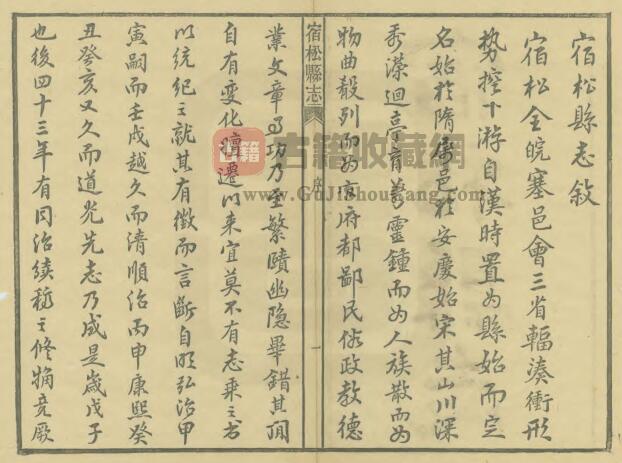 宿松縣志敘
宿松全皖塞邑會三省輻湊衝形
势控下游自漢時置為縣始而定
名始於隋屬邑於安慶始宋其山川深
秀濴迴亭育蓄靈鍾而為人族散而為
物曲殽列而為官府都鄙民俗政教德
宿松縣志
序
業文章事功乃至繁賾幽隐畢錯其間
自有變化嬗遷以来宜莫不有志乘之書
以统纪之就其有徵而言斷自明弘治甲
寅嗣而壬戌越久而清順治丙申康熙癸
丑癸亥又久而道光先志乃成是嵗戊子
也後四十三年有同治续稿之修稿竟厥
古籍收藏網
www.GuJiShouCang.com
古籍